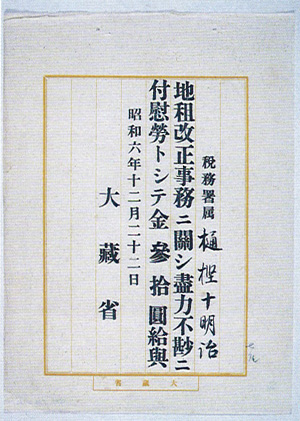 税務署属 樋 十明治
地租改正事務ニ關シ盡力不尠ニ
付慰勞トシテ金參拾圓給與
昭和六年十二月二十二日
大藏省
大藏省